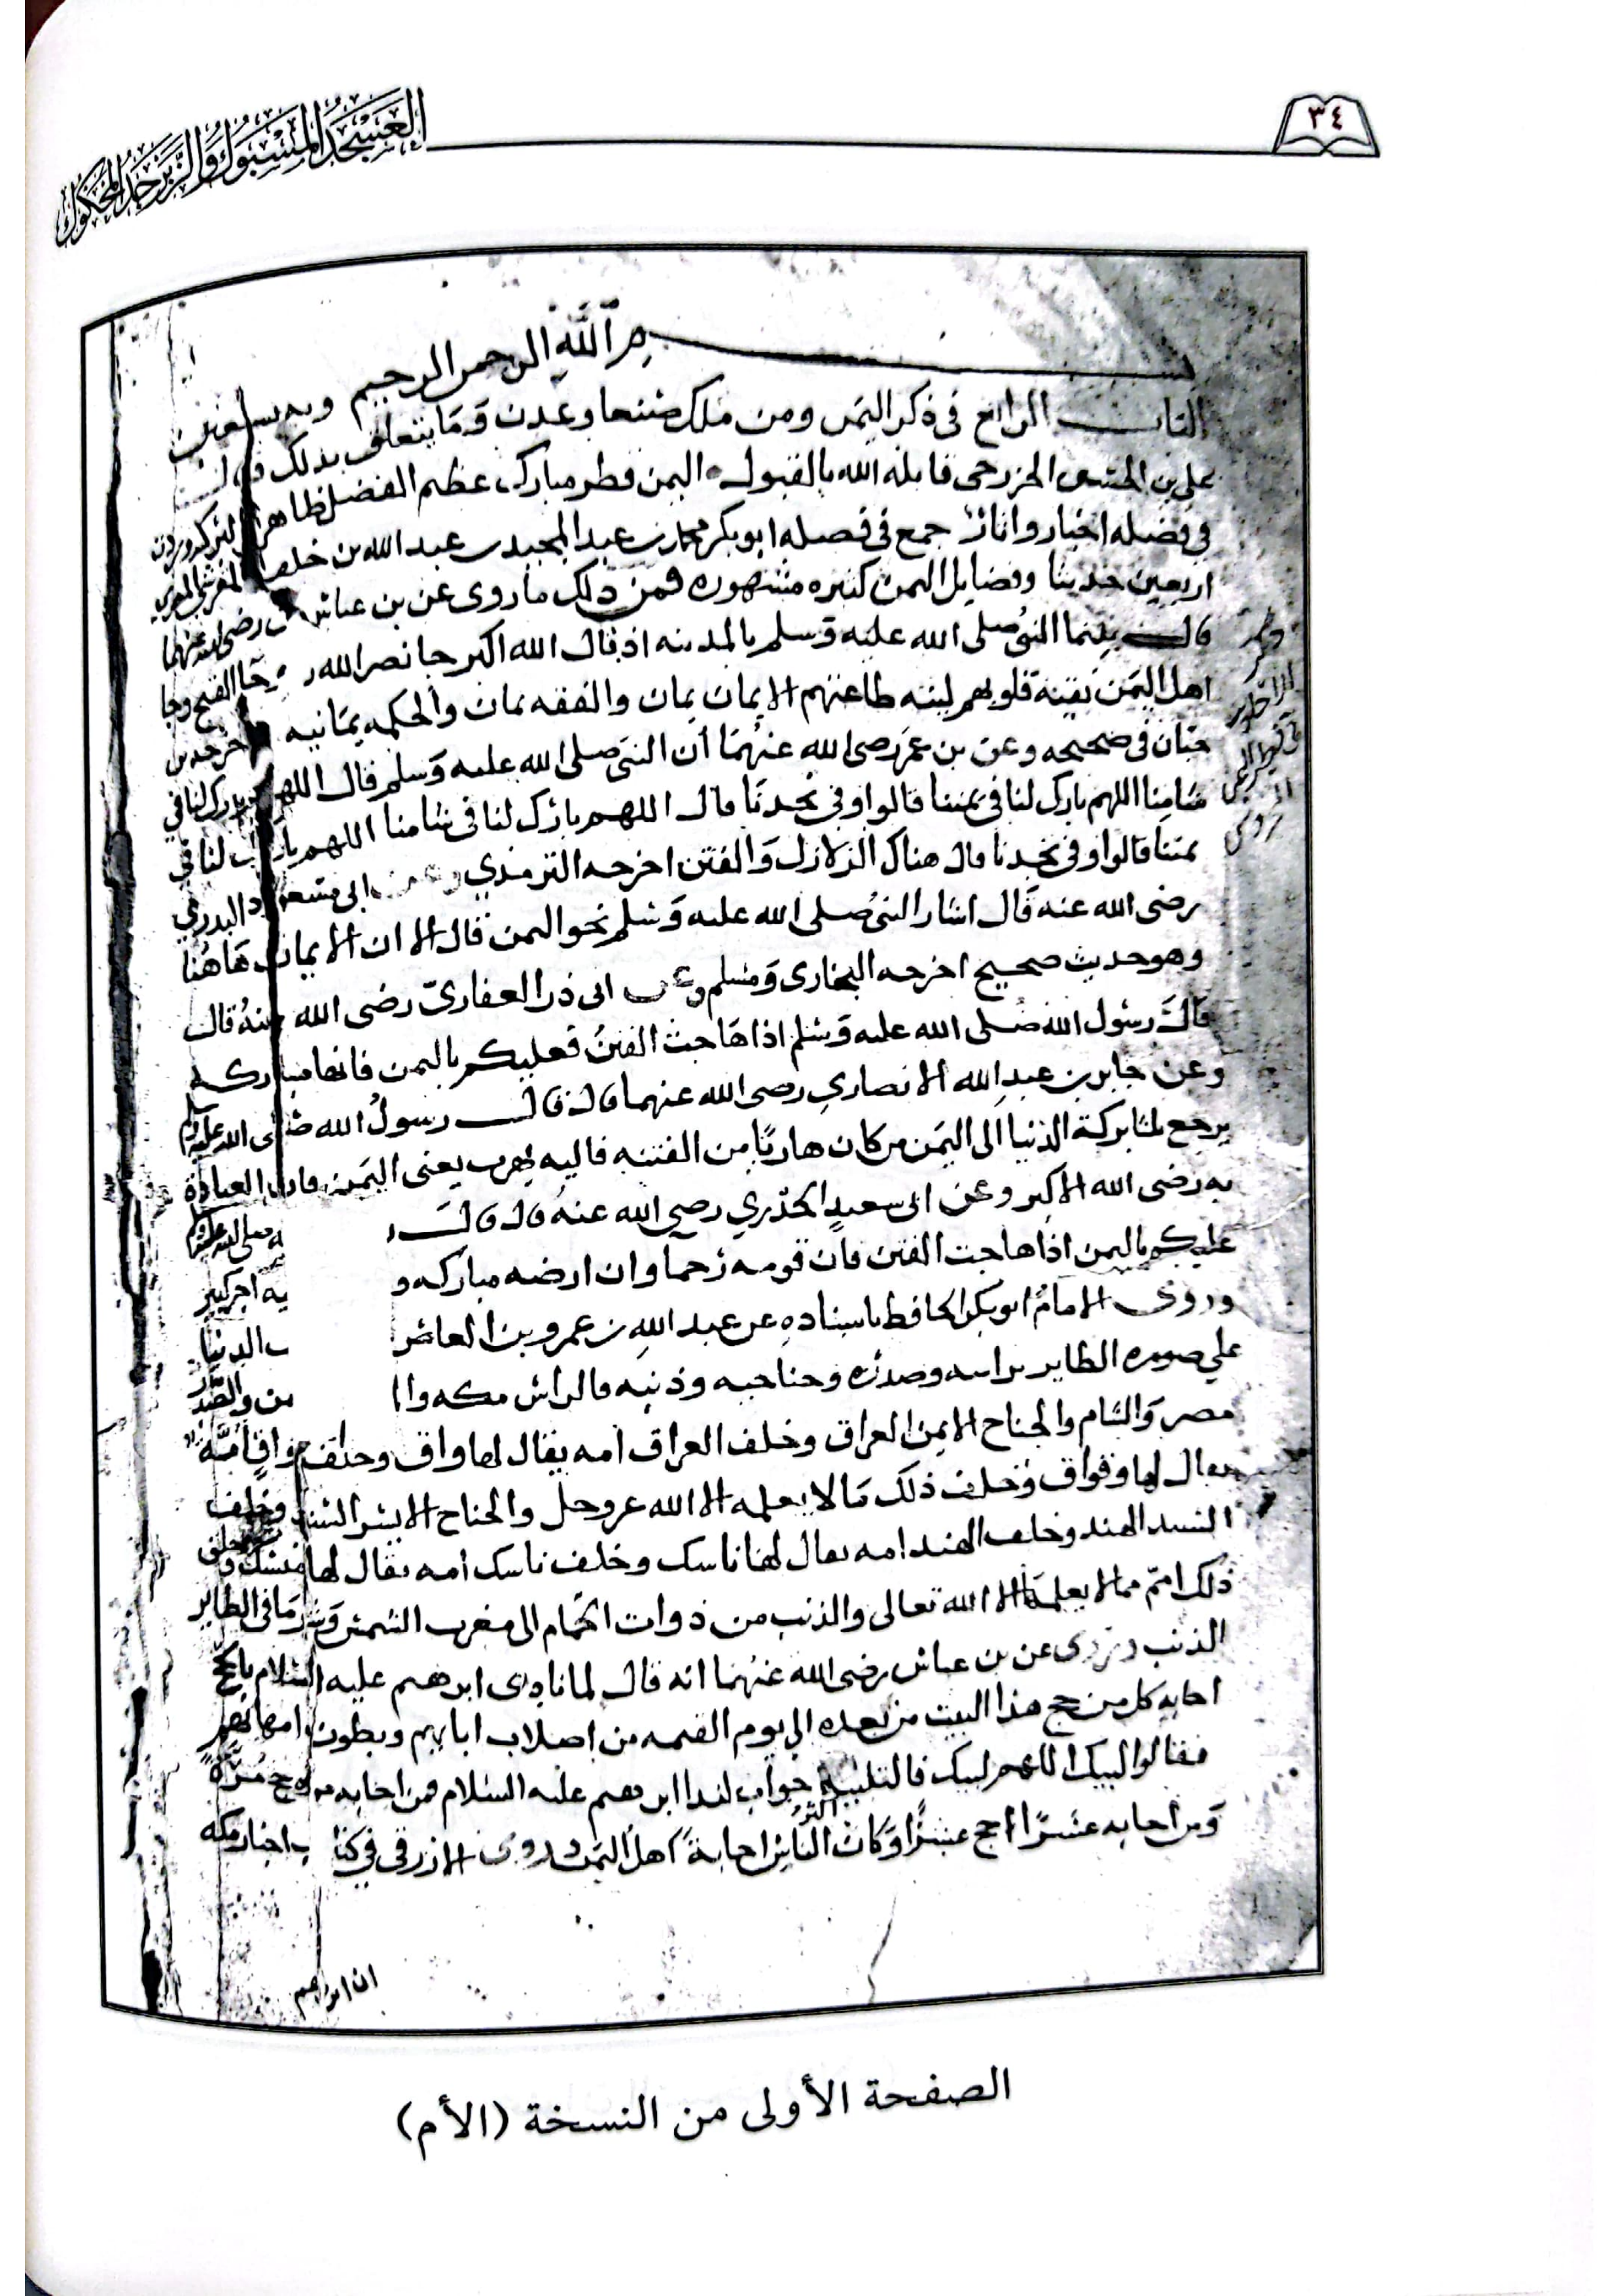 ٣٤
العَسْجَدُ المَسْبُوكُ وَالزَّبَرْجَدُ المَحْكُوكُ
بسم اللهِ الرحمن الرحيم وبه نستعين
الباب الرابع في ذكر اليمن ومن ملك صنعا وعدن وَمَا يتعلق بذلك قال
علي بن الحسن الخزرجي قابله الله بالقبول اليمن قطر مبارك عظيم الفضل ظاهر البركة وردت
في فضله اخبار واثار جمع في فضله ابو بكر محمد بن عبد المجيد بن عبد الله بن خلف
اربعين حديثا وفضايل اليمن كثيره مشهوره فمن ذلك ما روى عن بن عباس رضي الله عنهما
قال بينما النبي صلى الله عليه وَسلم بالمدينه اذ قال الله اكبر جا نصر الله وجا الفتح وجا
اهل اليمن نقية قلوبهم لينه طاعتهم الايمان يمان والفقه يمان والحكمه يمَانيه اخرجه بن
حبّان في صحيحه وعن بن عمر رضي الله عنهُمَا أن النبي صلى الله عليه وَسلم قال اللهم بارك لنا في
شامِنا اللهم بارك لنا في يمننا قالوا وفي نجدنا قال اللهم بارك لنا في شامنا اللهم بارك لنا في
يمننا قالوا وفي نجدنا قال هناك الزلازل وَالفتن اخرجه الترمذي وعن ابي مسعود البدري
رضي الله عنه قَال اشار النبي صلى الله عليه وَسَلم نحو اليمن فقال الا ان الايمان هَاهُنا
وهو حديث صحيح اخرجه البخاري وَمسلم وعن ابي ذر الغفاريّ رضى الله عنهُ قال
قالَ رسُول الله صَلى الله عليه وَسَلم اذا هَاجت الفتن فعليكم باليمن فانها مباركه
وعن جابر بن عبدِ الله الانصاري رضي الله عنهما قال قال رسولُ الله صلى الله عليه وسلم
يرجع ثلثا بركة الدنيا الى اليمَن من كان هاربًا من الفتنه فاليه يهرب يعنى اليمَن فان العبادة
به رضى الله الاكبر وعن ابي سعيدٍ الخدري رضي الله عنهُ قال قال ر ه صلى الله عليه وسلم
عليكم باليمن اذا هاجت الفتن فان قومه رُحما وان ارضه مباركه و يه اجر كبير
وروى الامامُ ابو بكر الحافظ باسنادهِ عن عبد اللهِ بن عمرو بن العاص ت الدنيا
علي صوره الطاير براسه وصدره وجناحيه وذنبه فالراس مكه وا من والصَّدر
مصر وَالشام والجناح الايمن العراق وخلف العراق امه يقال لها واق وخلف واق امَّة
يقال لها وقواق وَخلف ذلك مَا لا يعلمه الا الله عز وجل والجناح الايسر السند وخلف
السند الهند وخلف الهند امه يقال لها ناسك وخلف ناسك امه يقال لها منسك وخلف
ذلك امم مما لا يعلمَها الا الله تعالى والذنب من ذوات الحمام الى مغرب الشمس وَشر مَا في الطاير
الذنب وروى عن بن عباس رضى الله عَنهُمَا انه قال لما نادى ابرهيم عليه السّلام بالحج
اجابه كل من حج هذا البيت من بعده إلى يوم القيمه من اصلاب ابايهم وبطون امهاتهم
فقالوا لبيك اللهم لبيك فالتلبيه جواب لندا ابرهيم عليه السّلام فمن اجابه مرة حج مَرَّةً
وَمن اجابه عشرًا حج عشرًا وَكَانَ اكثر النّاس اجابةً اهل اليمَن وروى الازرقي في كتاب اخبار مكه
ان ابراهيم
الصفحة الأولى من النسخة (الأم)